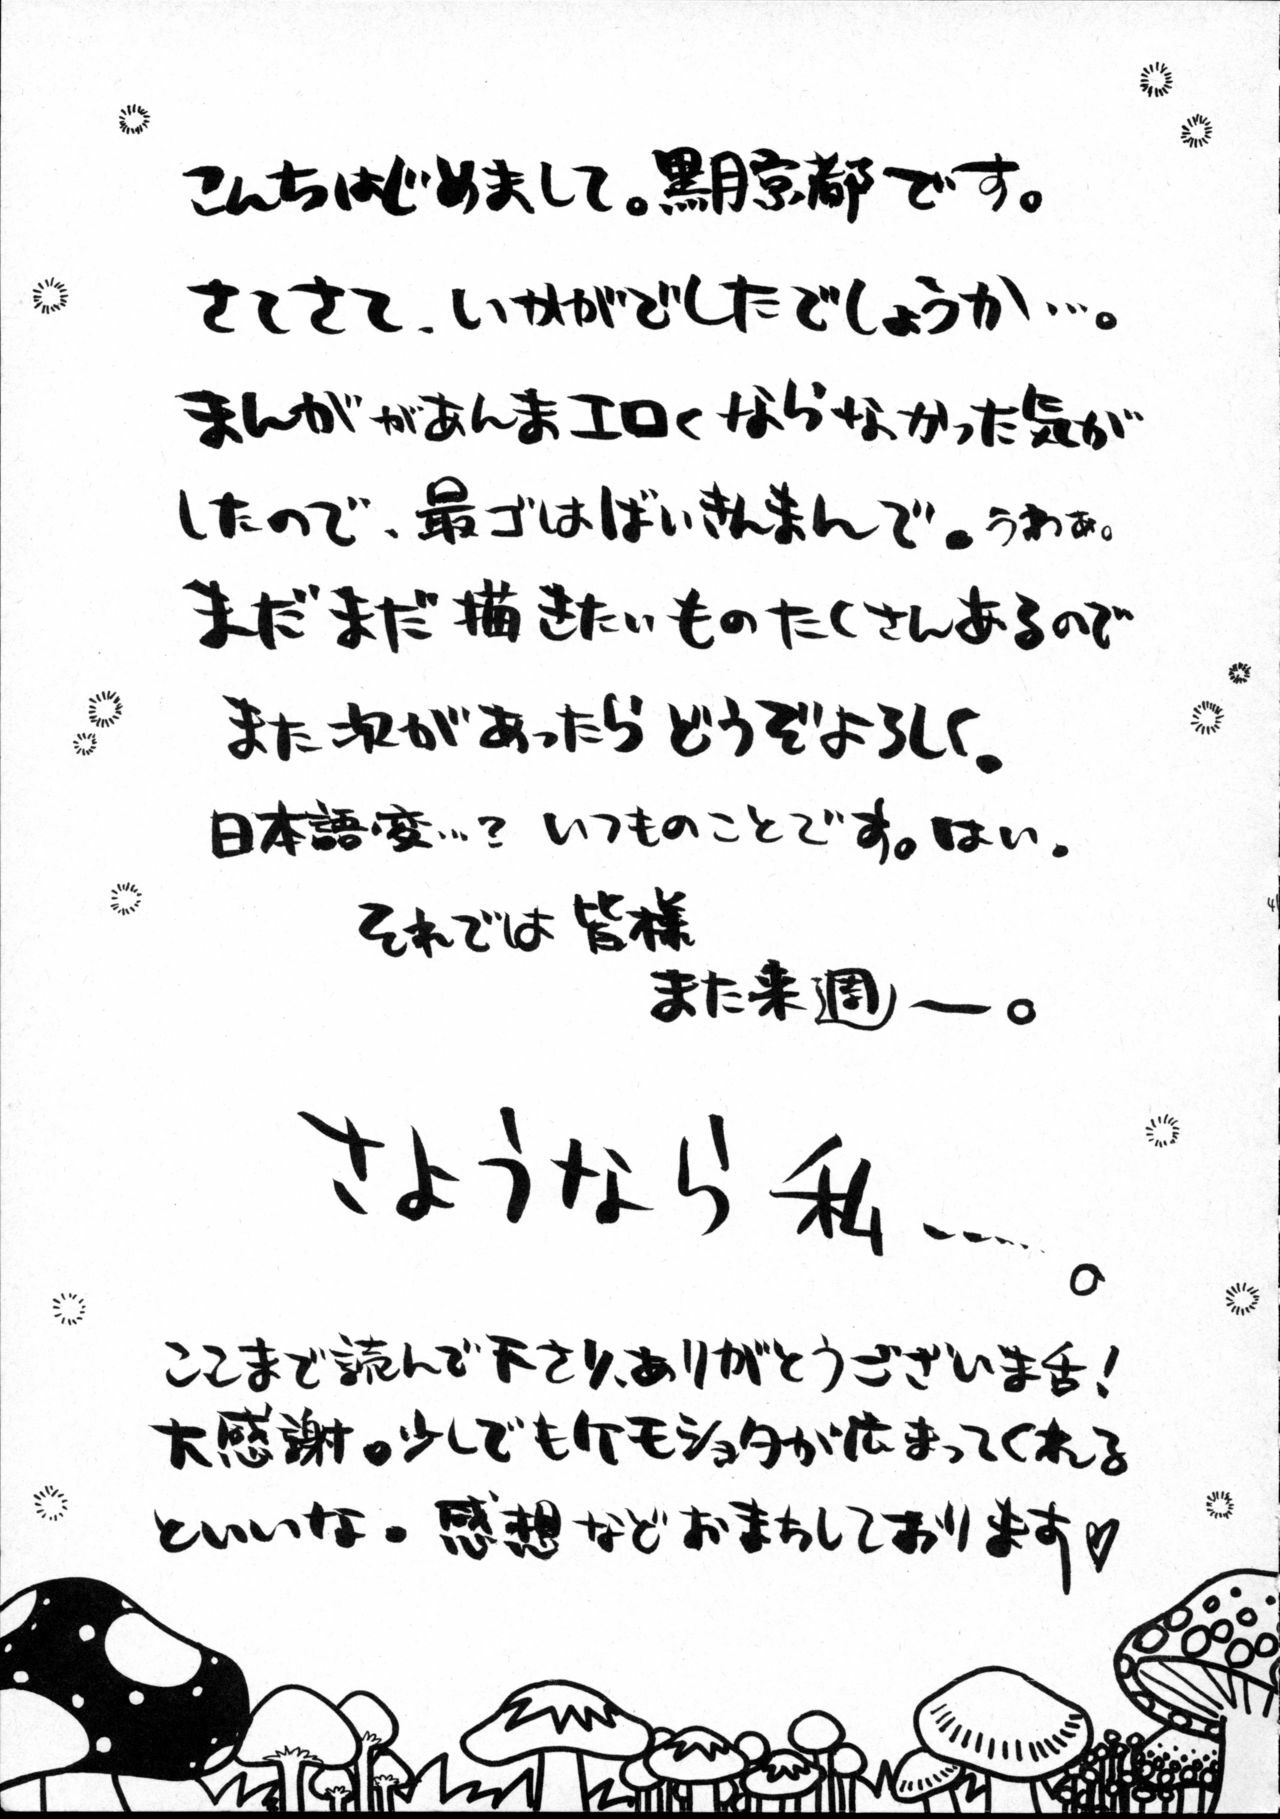 こんちはじめまして。黒月京都です。
さてさて、いかがでしたでしょうか…。
まんががあんまエロくならなかった気が
したので、最ゴはばいきんまんで。うわぁ。
まだまだ描きたいものたくさんあるので
また次があったらどうぞよろしく。
日本語変…？いつものことです。はい。
それでは皆様
また来週ー。
さようなら私ー……。
ここまで読んで下さり、ありがとうございま舌！
大感謝。少しでもケモショタが広まってくれる
といいな。感想などおまちしております♡